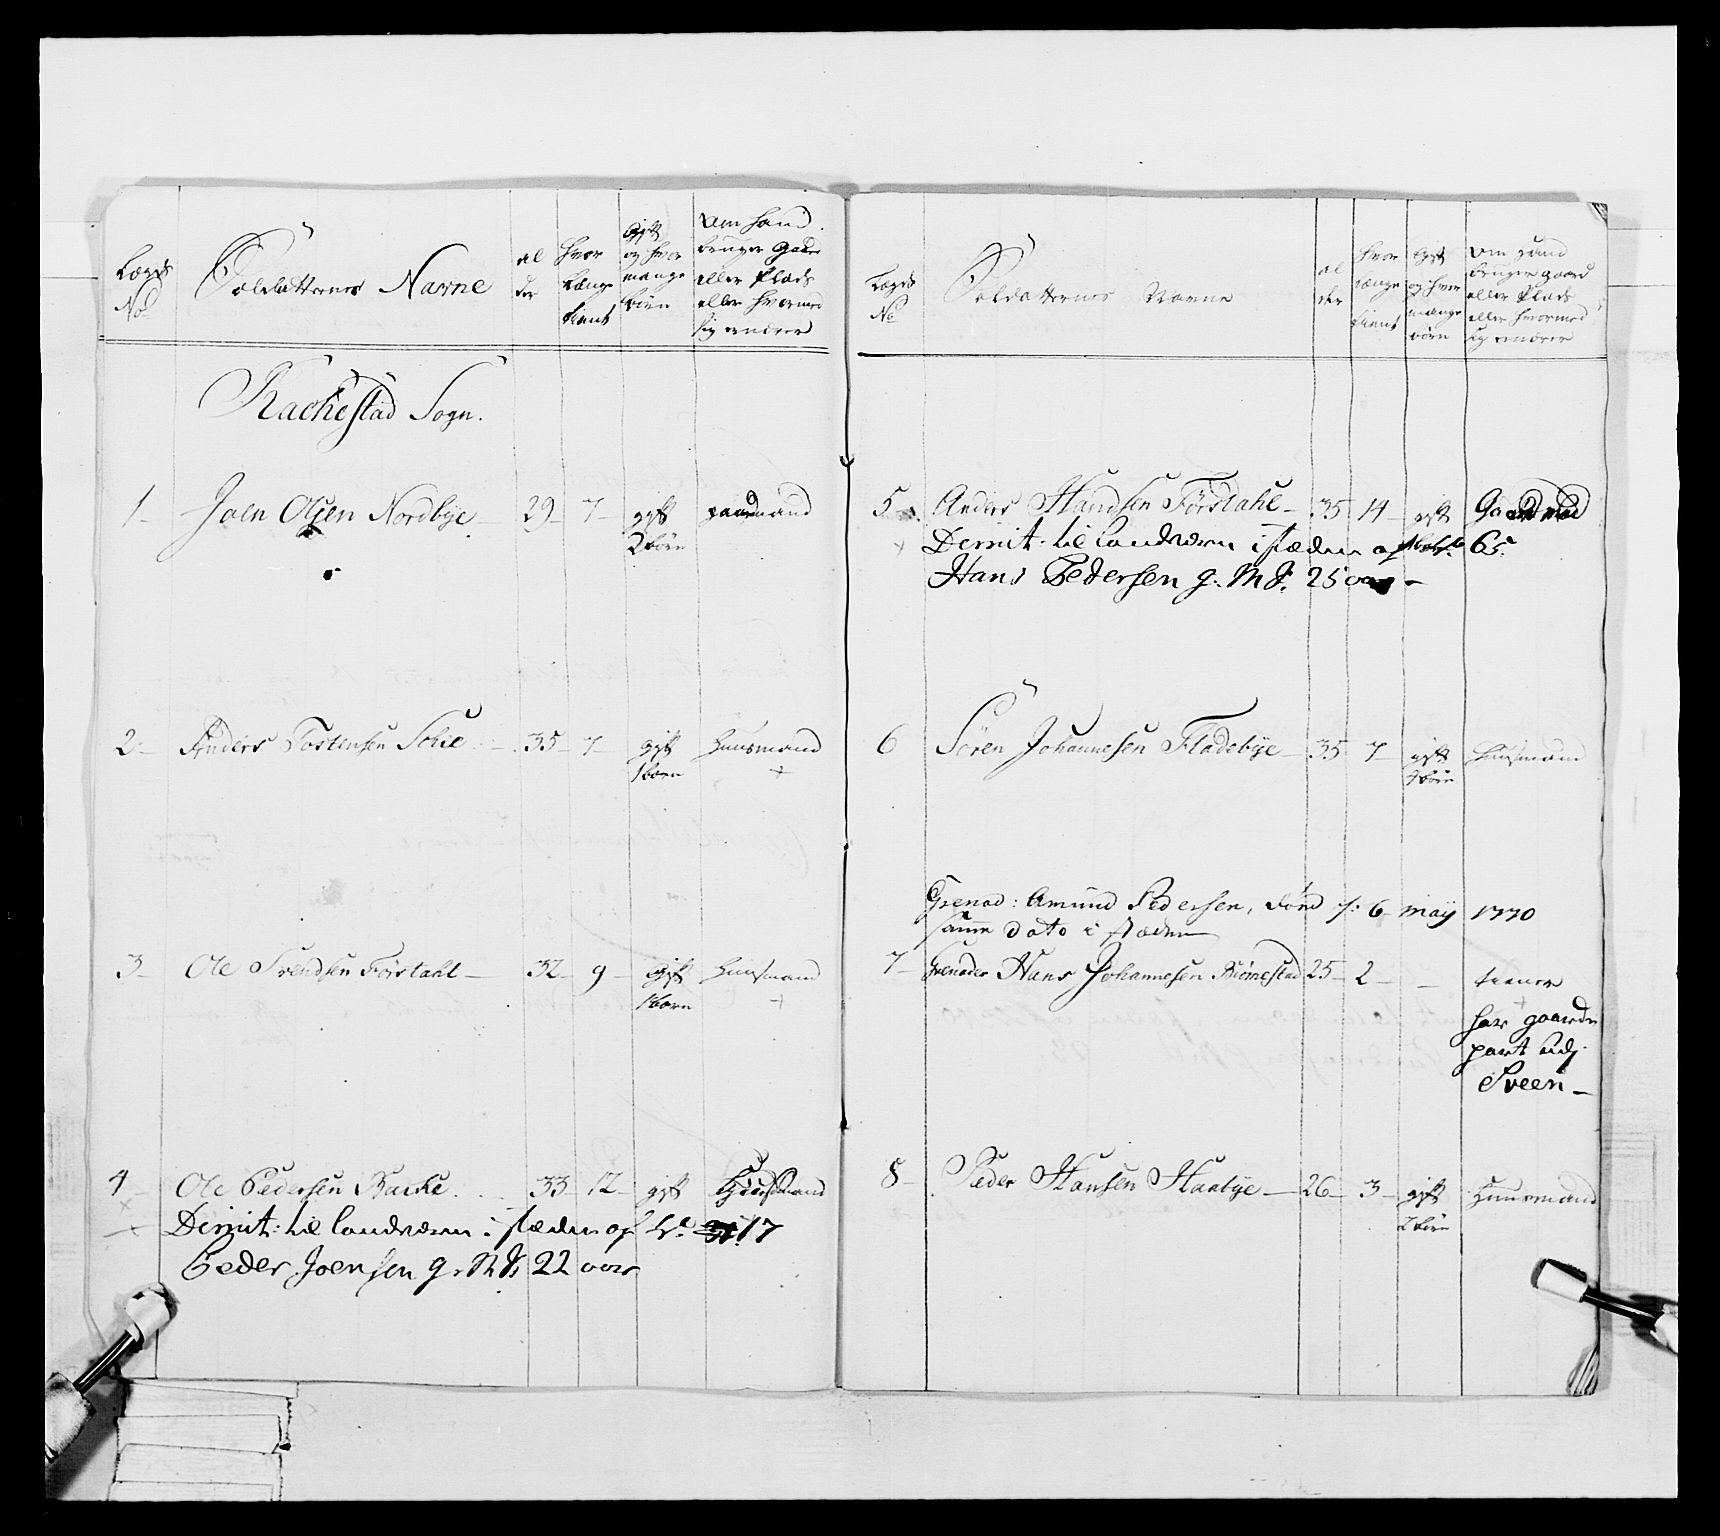 Lægds No
Soldatternes Navne
al der
hvor længe tient
Gift og hvor mange børn
Om hand bruger gaard eller Plads eller hvormed sig ernærer
Rachestad Sogn.
1 - Joen Olsen Nordbye - 29 - 7 - gift 2 børn gaardmand
2 - Anders Torstensen Schie - 35 - 7 - gift 1 barn Huusmand
+
3 - Ole Svendsen Førstahl - 32 - 9 - gift 1 barn Huusmand
+
4 - Ole Pedersen Bache . . . 33 12 - gift Huusmand
Dimit: til Landværn i stæden af 17
Peder Joensen g. 22 aar
Lægds No
Soldatternes Navne
al der
hvor længe tient
Gift og hvor mange børn
Om hand bruger gaard eller Plads eller hvormed sig ernærer
5 Anders Handsen Førstahl - 35 14 - gift Gaardmand
Dimit: til Landværn i stæden af 65
Hans Pedersen g. 25 aar -
6 Søren Johannesen Fladebye - 35 7 - gift børn Huusmand
Grenad: Amund Pedersen, død d: 6 - may 1770
samme dato i stæden
7 - Grenader Hans Johannesen Biørnestad 25 - 2 - - tiener
+
har gaarde
part udj
Sveen -
8 - Peder Hansen Haabye - 26 - 3 - gift 2 børn Huusmand